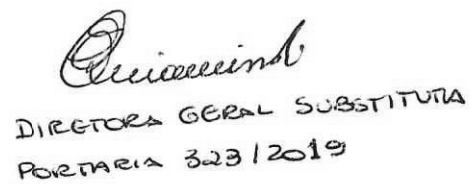 DIRETORA GERAL SUBSTITUTA
PORTARIA 323/2019